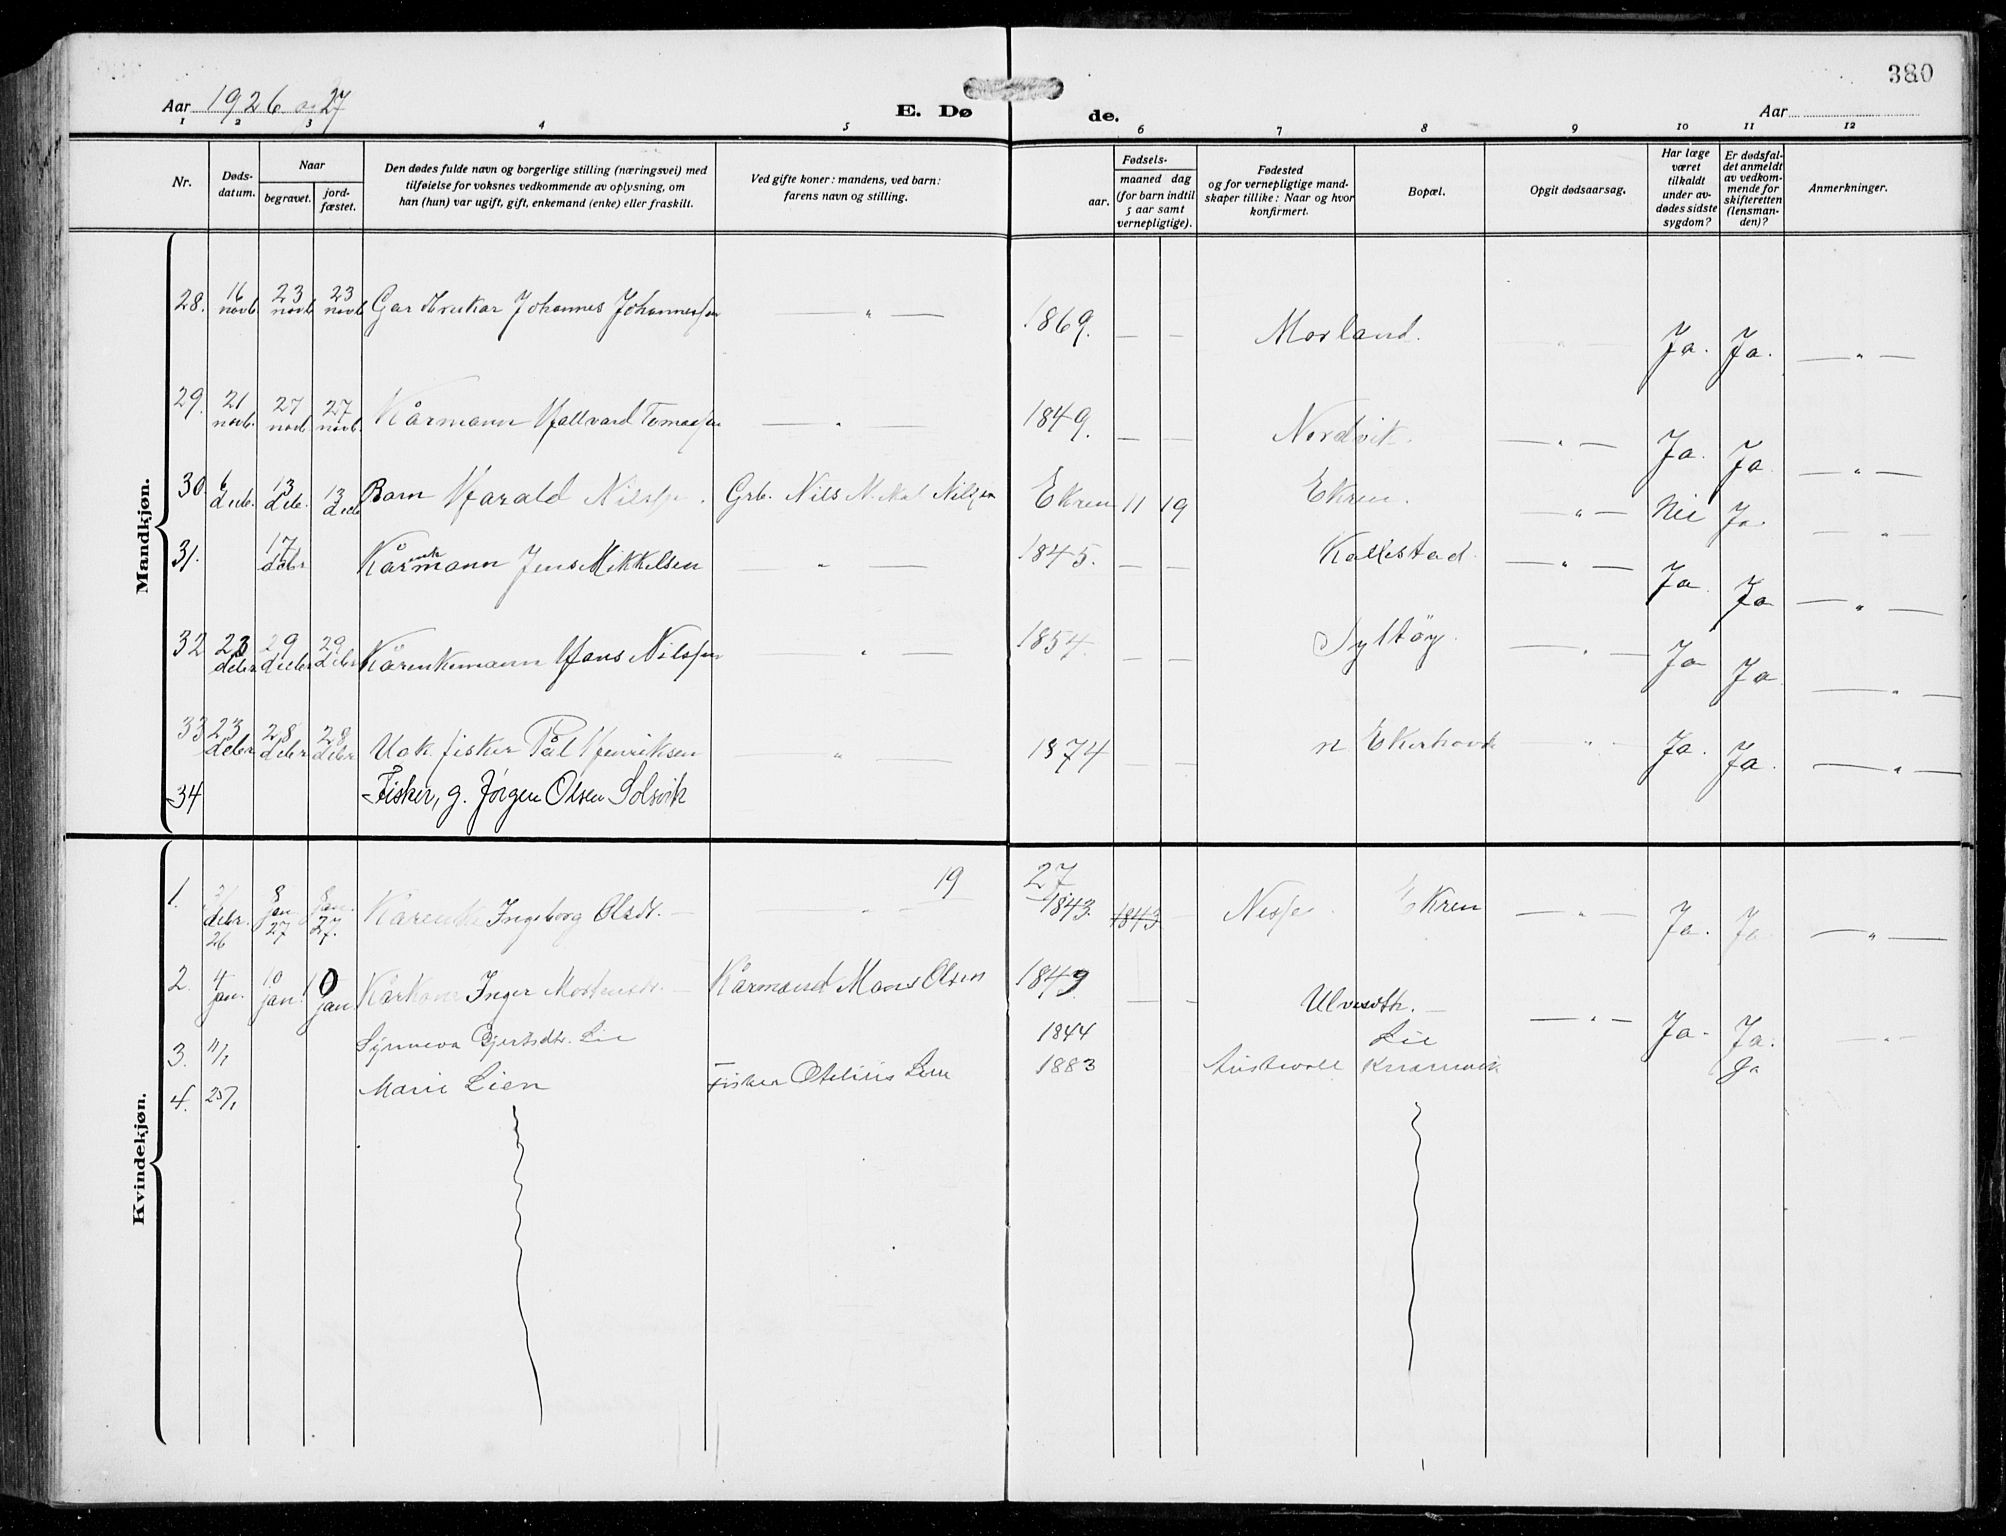 380
Aar 1926 og 27
E. Døde.
Aar
1 2 3 4 5 6 7 8 9 10 11 12
Nr.
Døds-
datum.
Naar
begravet.
jord-
fæstet.
Den dødes fulde navn og borgerlige stilling (næringsvei) med
tilføielse for voksnes vedkommende av oplysning, om
han (hun) var ugift, gift, enkemand (enke) eller fraskilt.
Ved gifte koner: mandens, ved barn:
farens navn og stilling.
Fødsels-
aar.
maaned dag
(for barn indtil
5 aar samt
vernepligtige).
Fødested
og for vernepligtige mand-
skaper tillike: Naar og hvor
konfirmert.
Bopæl.
Opgit dødsaarsag.
Har læge
været
tilkaldt
under av-
dødes sidste
sygdom?
Er dødsfal-
det anmeldt
av vedkom-
mende for
skifteretten
(lensman-
den)?
Anmerkninger.
Mandkjøn.
28. 16 novb. 23 novb 23 novb Johannes Johannessen — " — 1869. — — Morland. Ja. Ja. — " —
29. 21 novb. 27 novb 27 novb. Kårmann Hallvard Tomassen — " — 1849. — — Nordvik. — " — Ja. Ja. — " —
30. 6 decbr. 13 decbr. 13 decbr Barn Harald Nilssen. Grb. Nils Nilssen Ekren 11 19 Ekren. — " — Nei Ja. — " —
31. 17 decbr Kårenkmann Jens Mikkelsen — " — 1845. — — Kallestad. — " — Ja Ja — " —
32 23 decbr 29 decbr 29 decbr Kårenkemann Hans Nilssen — " — 1854. — — Syltøy. — " — Ja Ja — " —
33 23 decbr 28 decbr 28 decbr Uak. fisker Pål Henriksen — " — 1874 — — n Ekerhovd Ja. Ja. — " —
34 Fisker, g. Jørgen Olsen Solsvik
Kvindekjøn.
19 27
1. 31/ decbr. 26 8 jan 27 8 jan. 27. Kårenke Ingeborg Olsdt. — " 1843. 1843 — Nesse. Ekren — " — Ja. Ja — " —
2. 4 jan. 10 jan. 10 jan Kårkone Inger Mostensdt. — Kårmand Mons Olsen 1849 — — Ulveseth. — — " — Ja. Ja.
3. 11/1 Synneva Gjertsdtr. Lie 1844 Lie
4. 25/1 Marie Lien Fisker Lien 1883 Austevoll Knarrevik Ja